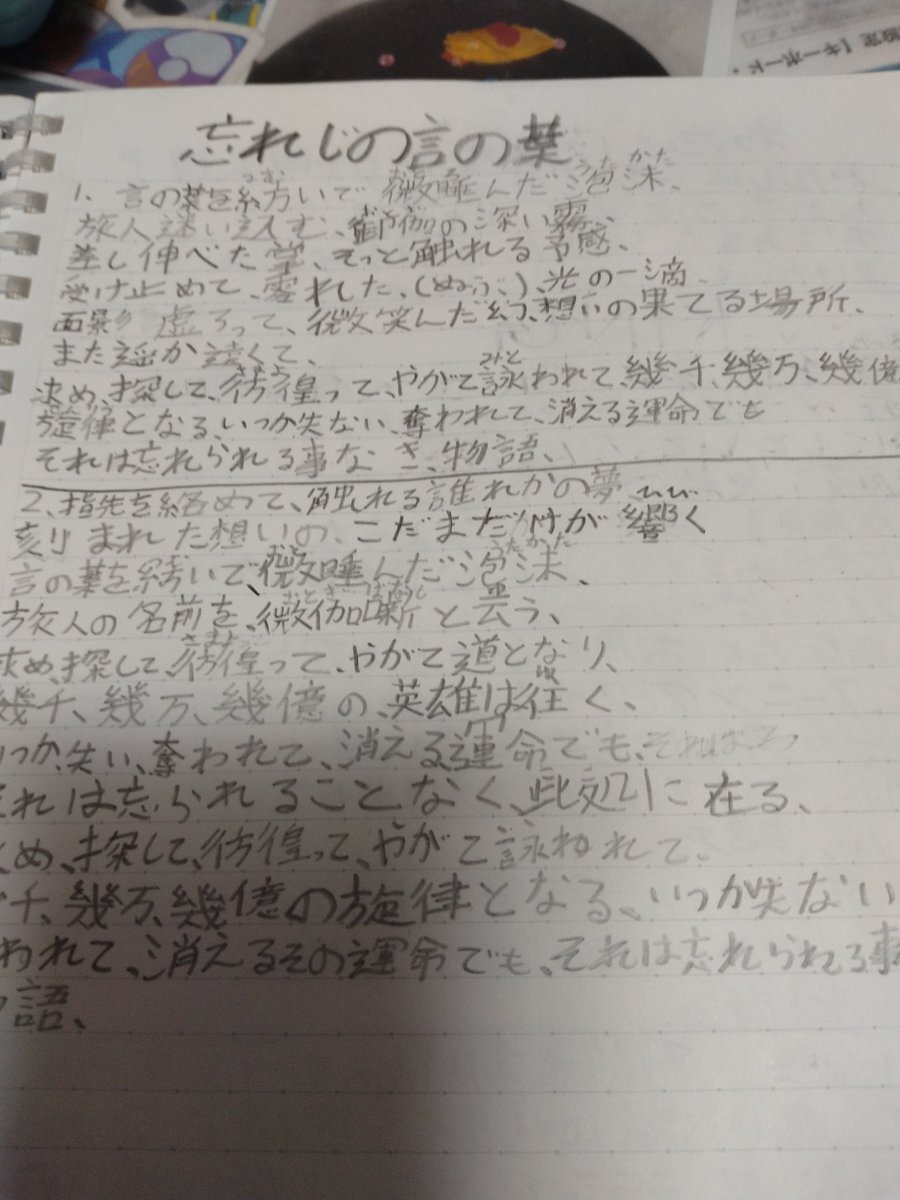 設定【キーボード.
忘れじの言の葉
1. 言の葉を紡いで 微睡んだ泡沫、
旅人迷い込む、御伽の深い霧、
差し伸べた掌、そっと触れる予感、
受け止めて、零れした、(ぬふ゛)、光の一滴
面影 虚ろって、微笑んだ幻、想いの果てる場所、
また遥か遠くて、
求め、探して、彷徨って、やがて詠われて、幾千、幾万、幾億
旋律となる、いつか失ない、奪われて、消える運命でも
それは忘れられる事なき、物語、
2、指先を絡めて、触れる誰れかの夢
刻りまれた想いの、こだまだけが響く
言の葉を紡いで、微睡んだ泡沫、
旅人の名前を、微伽噺と云う、
求め、探して、彷徨って、やがて道となり、
幾千、幾万、幾億の、英雄は往く、
いつか、失い、奪われて、消える運命でも、それは
それは忘られることなく、此処に在る、
め、探して、彷徨って、やがて詠われて、
千、幾万、幾億の旋律となる、いつか失ない
われて、消えるその運命でも、それは忘れられる事
語、